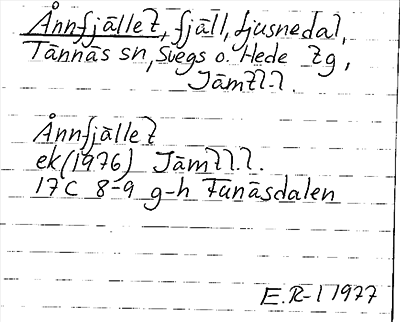 Ånnfjället, fjäll, Ljusnedal,
Tännäs sn, Svegs o. Hede tg,
Jämtl.l.
Ånnfjället
ek (1976) Jämtl.l.
17C 8-9 g-h Funäsdalen
E.R-l 1977